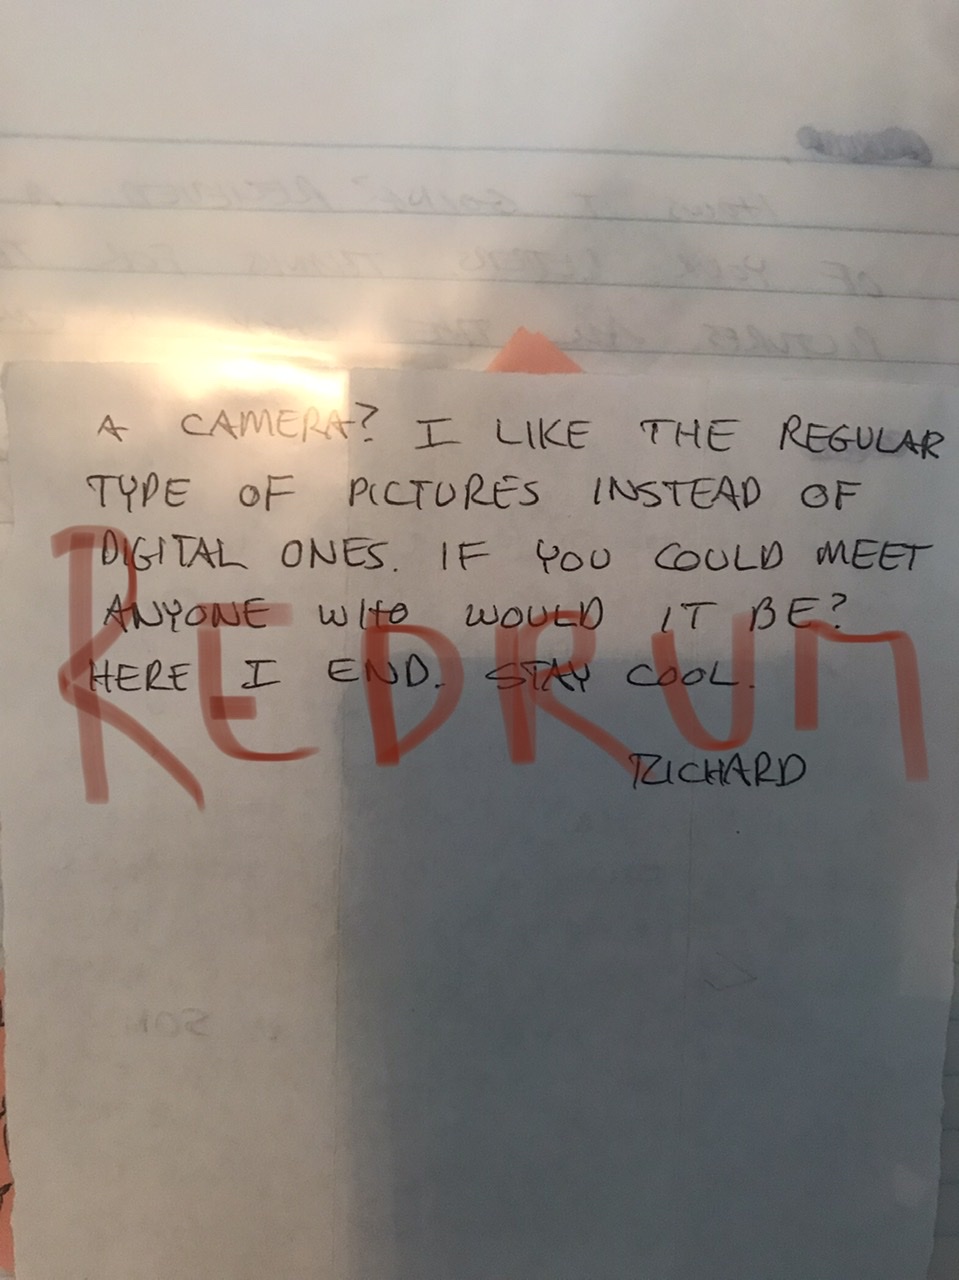 A CAMERA? I LIKE THE REGULAR
TYPE OF PICTURES INSTEAD OF
DIGITAL ONES. IF YOU COULD MEET
ANYONE WHO WOULD IT BE?
HERE I END. STAY COOL.
REDRUM
RICHARD